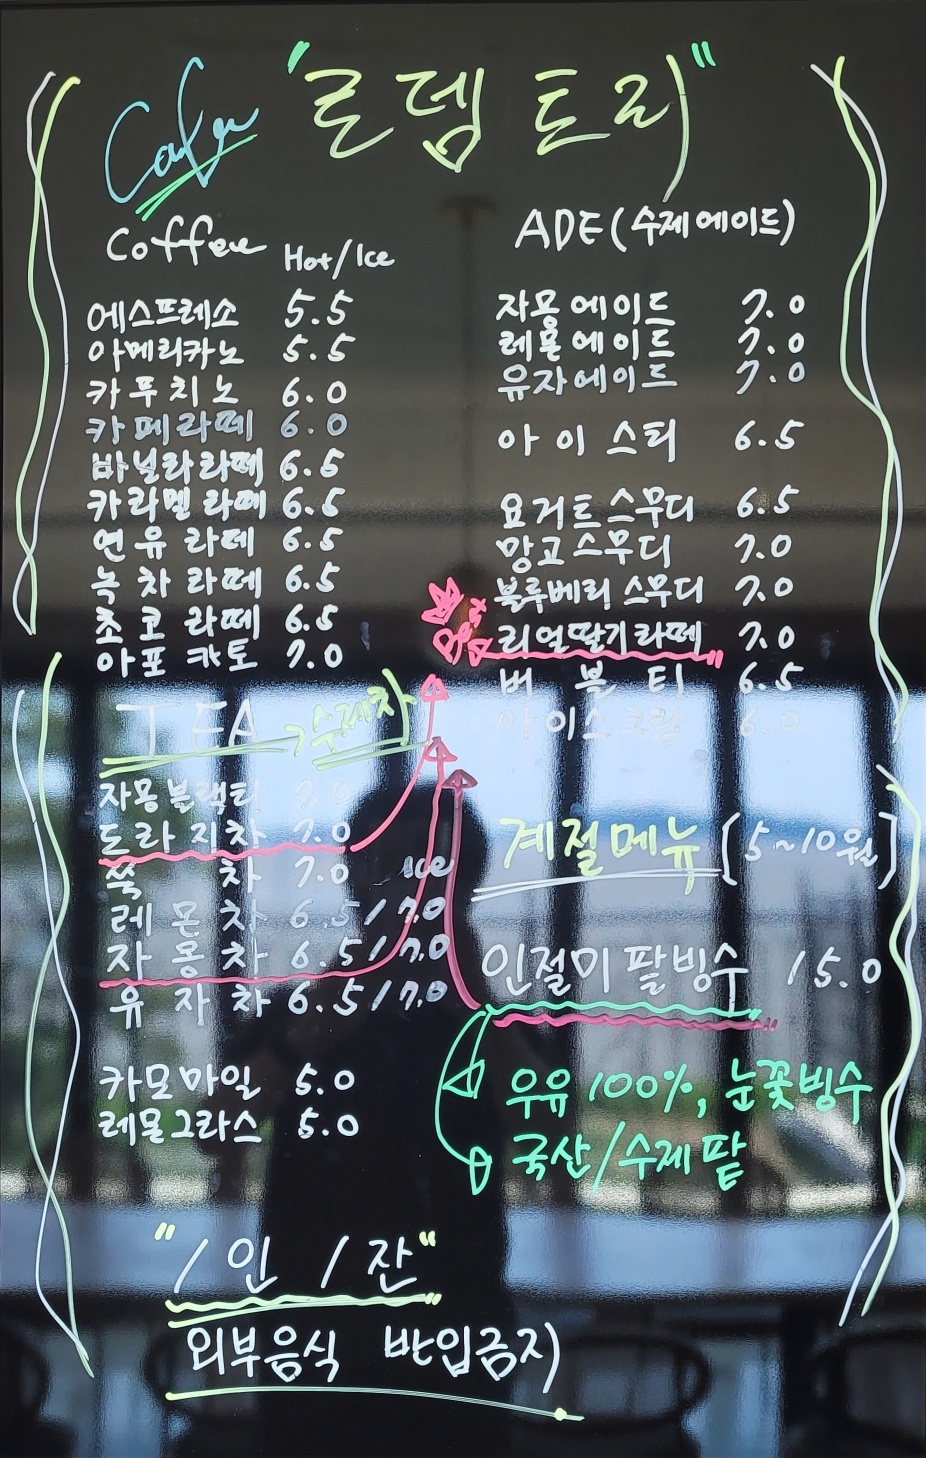 Cafe "로뎀 토리"
Coffee Hot/Ice
에스프레소 5.5
아메리카노 5.5
카푸치노 6.0
카페라떼 6.0
바닐라라떼 6.5
카라멜라떼 6.5
연유라떼 6.5
녹차라떼 6.5
초코라떼 6.5
아포카토 7.0
TEA, 수제차
자몽블랙티 7.0
도라지차 7.0
쑥차 7.0 Ice
레몬차 6.5/7.0
자몽차 6.5/7.0
유자차 6.5/7.0
카모마일 5.0
레몬그라스 5.0
ADE (수제에이드)
자몽에이드 7.0
레몬에이드 7.0
유자에이드 7.0
아이스티 6.5
요거트스무디 6.5
망고스무디 7.0
블루베리스무디 7.0
Best
리얼딸기라떼 7.0
버블티 6.5
아이스크림 6.0
계절메뉴 [5~10월]
인절미팥빙수 15.0
우유100%, 눈꽃빙수
국산/수제팥
"1인 1잔"
외부음식 반입금지